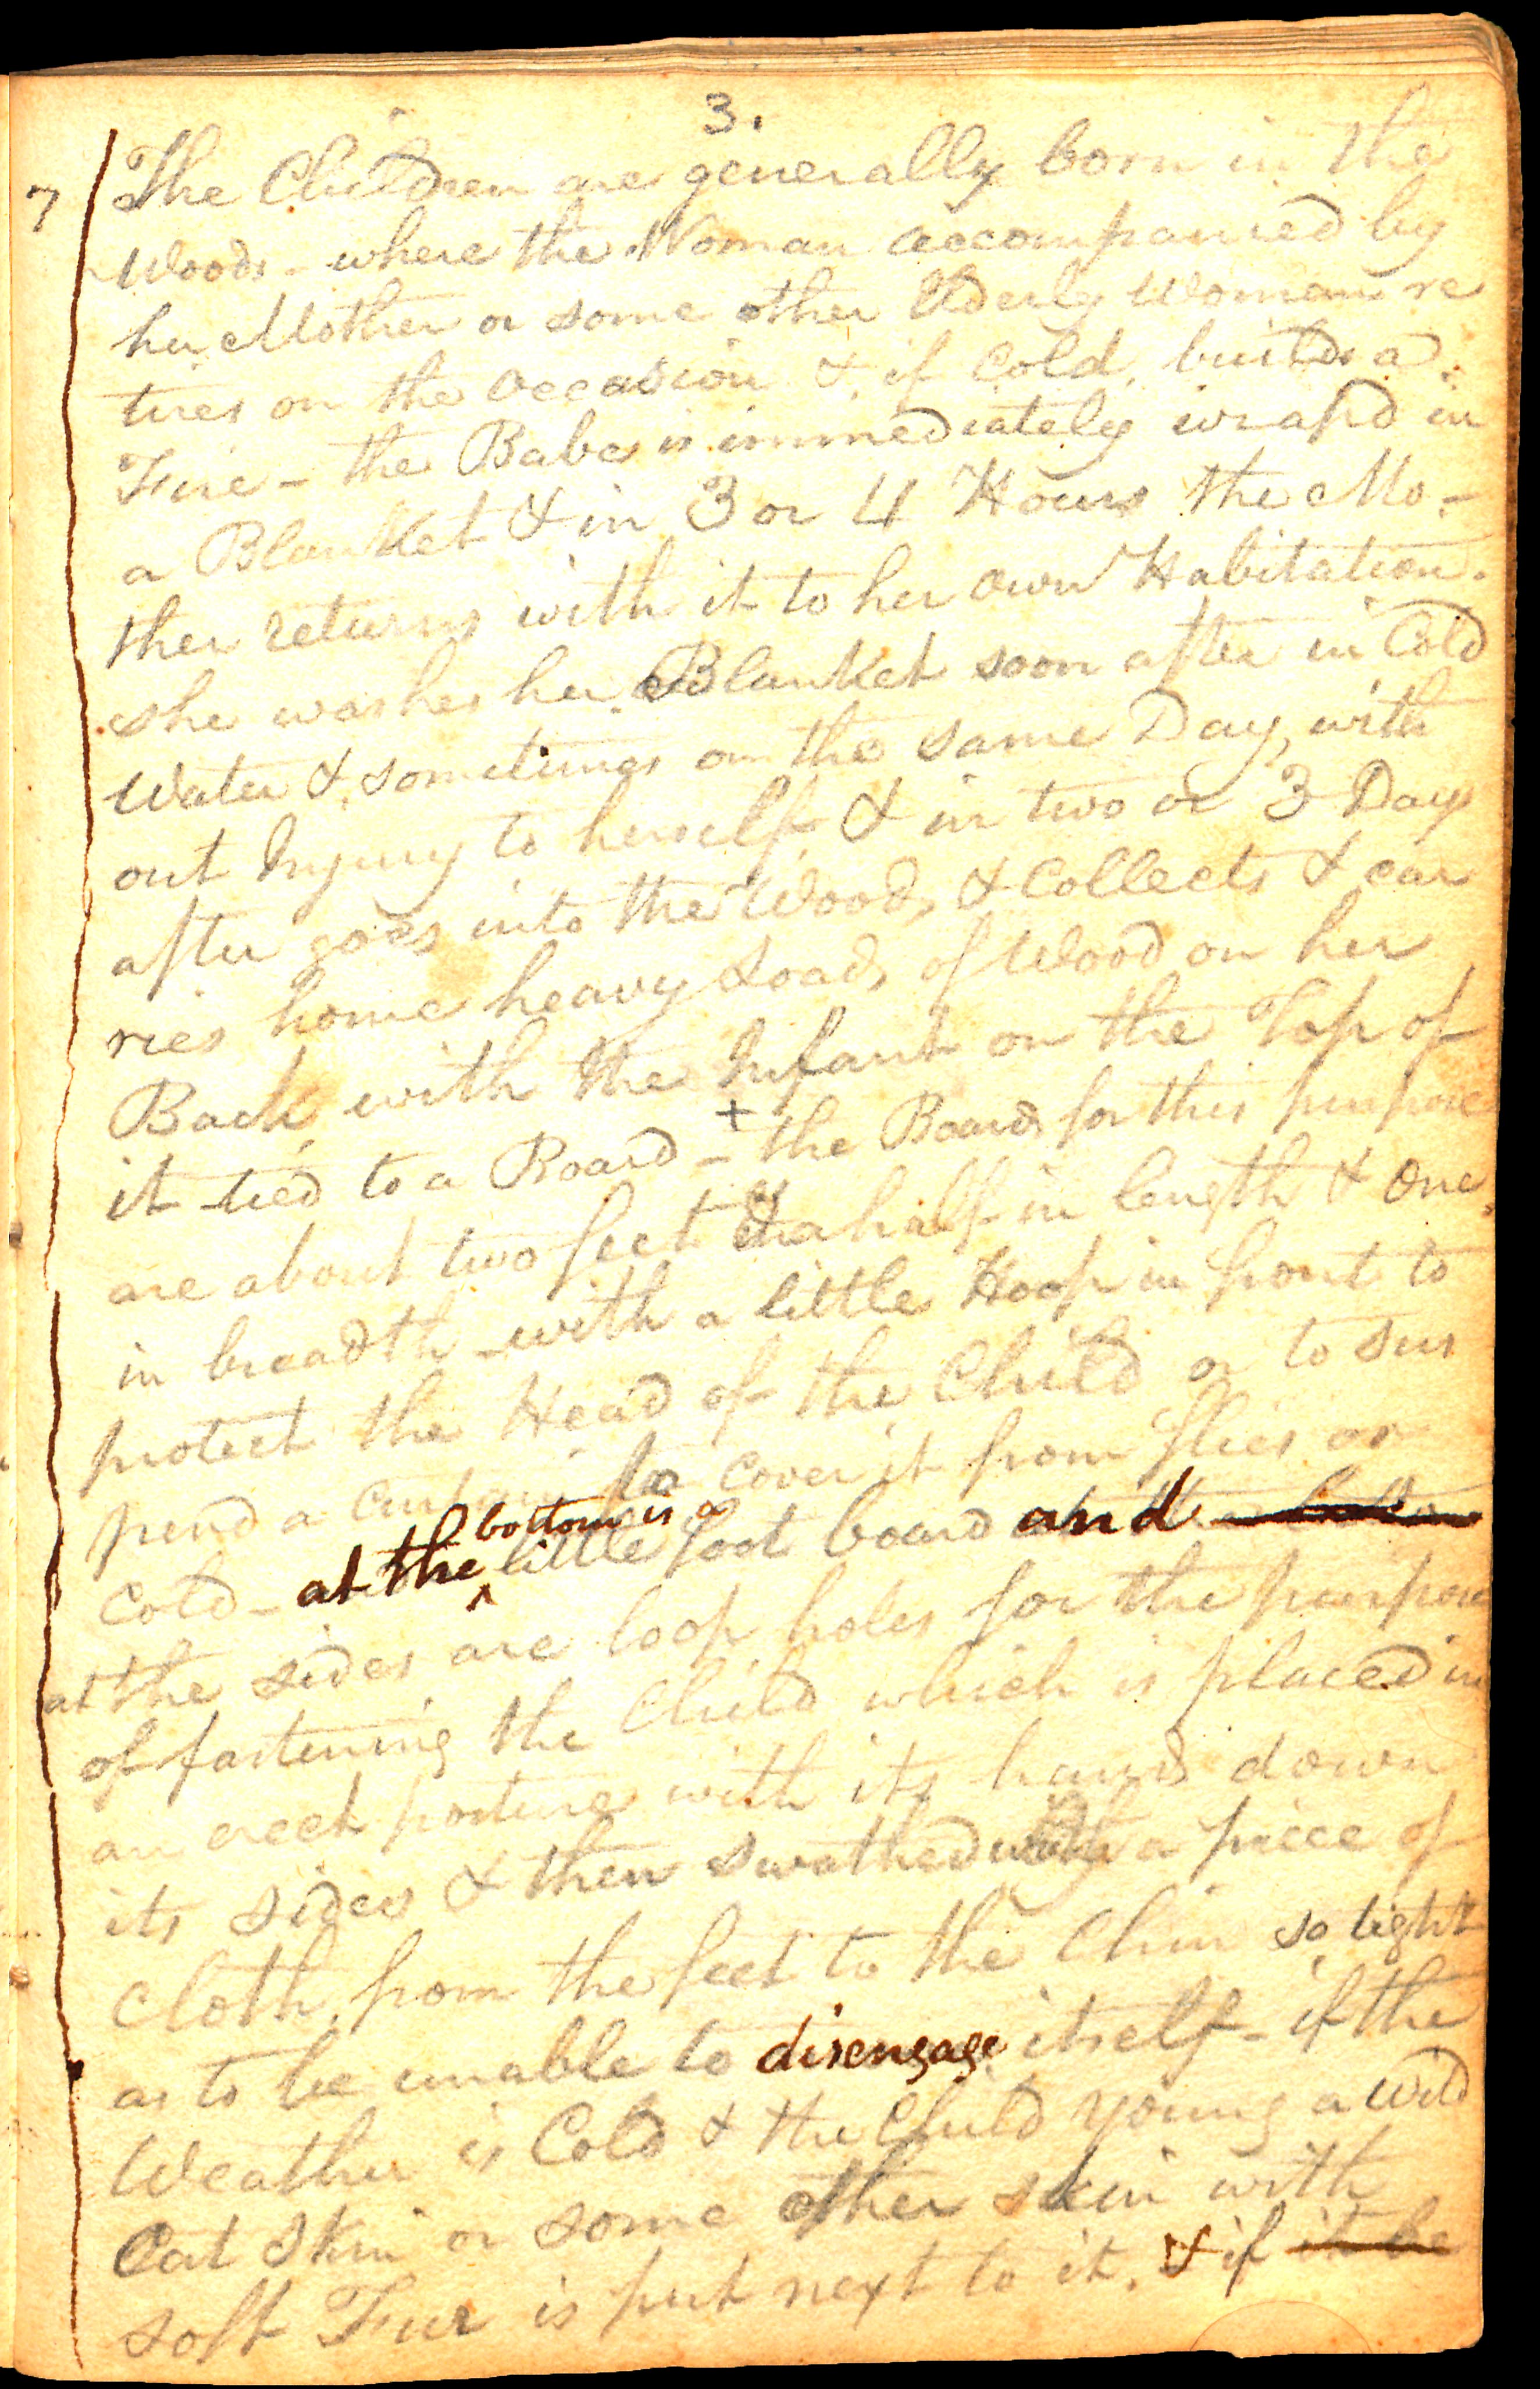 3.
7 The Children are generally born in the
Woods - where the Woman accompanied by
her Mother or some other Elderly Woman re
tires on the occasion & if Cold, builds a
Fire - the Babe is immediately wrap'd in
a Blanket & in 3 or 4 Hours the Mo-
ther returns with it to her own Habitation.
she washes her Blanket soon after in Cold
Water & sometimes on the same Day, with
out Injury to herself & in two or 3 Days
after goes into the Woods & Collects & car
ries home heavy Loads of Wood on her
Back with the Infant on the Top of
it tied to a Board - + the Boards for this purpose
are about two feet & a half in length & One
in breadth - with a little Hoop in front to
protect the Head of the Child or to sus
pend a Curtain to cover it from flies or
Cold - at the bottom is a little foot board and
at the sides are loop holes for the purpose
of fastening the Child which is placed in
an erect posture with its hands down
its sides & then swathed with a piece of
Cloth from the feet to the Chin so tight
as to be unable to disengage itself - if the
Weather is Cold & the Child young a Wild
Cat Skin or some other skin with
soft Fur is put next to it. & if it be